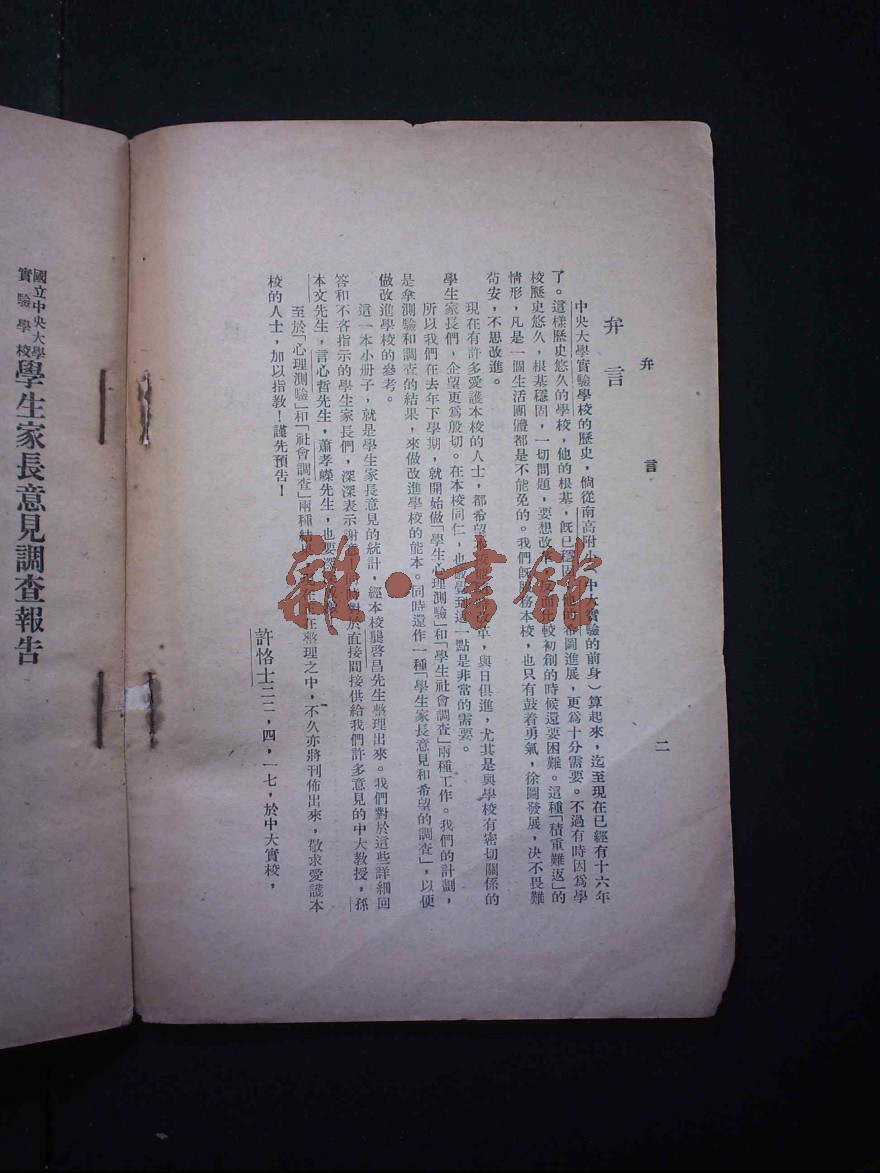 弁言
二
弁言
中央大學實驗學校的歷史，倘從南高附小（中大實驗的前身）算起來，迄至現在已經有十六年
了。這樣歷史悠久的學校，他的根基，旣已穩固，他的希圖進展，更爲十分需要。不過有時因爲學
校歷史悠久，根基穩固，一切問題，要想改 較初創的時候還要困難。這種「積重難返」的
情形，凡是一個生活團體都是不能免的。我們旣服務本校，也只有鼓着勇氣，徐圖發展，决不畏難
茍安，不思改進。
現在有許多愛護本校的人士，都希望 改革，與日俱進，尤其是與學校有密切關係的
學生家長們，企望更爲殷切。在本校同仁，也感覺到這一點是非常的需要。
所以我們在去年下學期，就開始做「學生心理測驗」和「學生社會調查」兩種工作。我們的計劃，
是拿測驗和調查的結果，來做改進學校的能本。同時還作一種「學生家長意見和希望的調查」，以便
做改進學校的參考。
這一本小册子，就是學生家長意見的統計，經本校龔啓昌先生整理出來。我們對於這些詳細回
答和不吝指示的學生家長們，深深表示謝意 對於直接間接供給我們許多意見的中大教授，孫
本文先生，言心哲先生，蕭孝嶸先生，也要深
至於「心理測驗」和「社會調查」兩種結 在整理之中，不久亦將刊佈出來，敬求愛護本
校的人士，加以指教！謹先預告！
許恪士二二，四，一七，於中大實校，
國立中央大學
實驗學校
學生家長意見調查報告
雜·書館